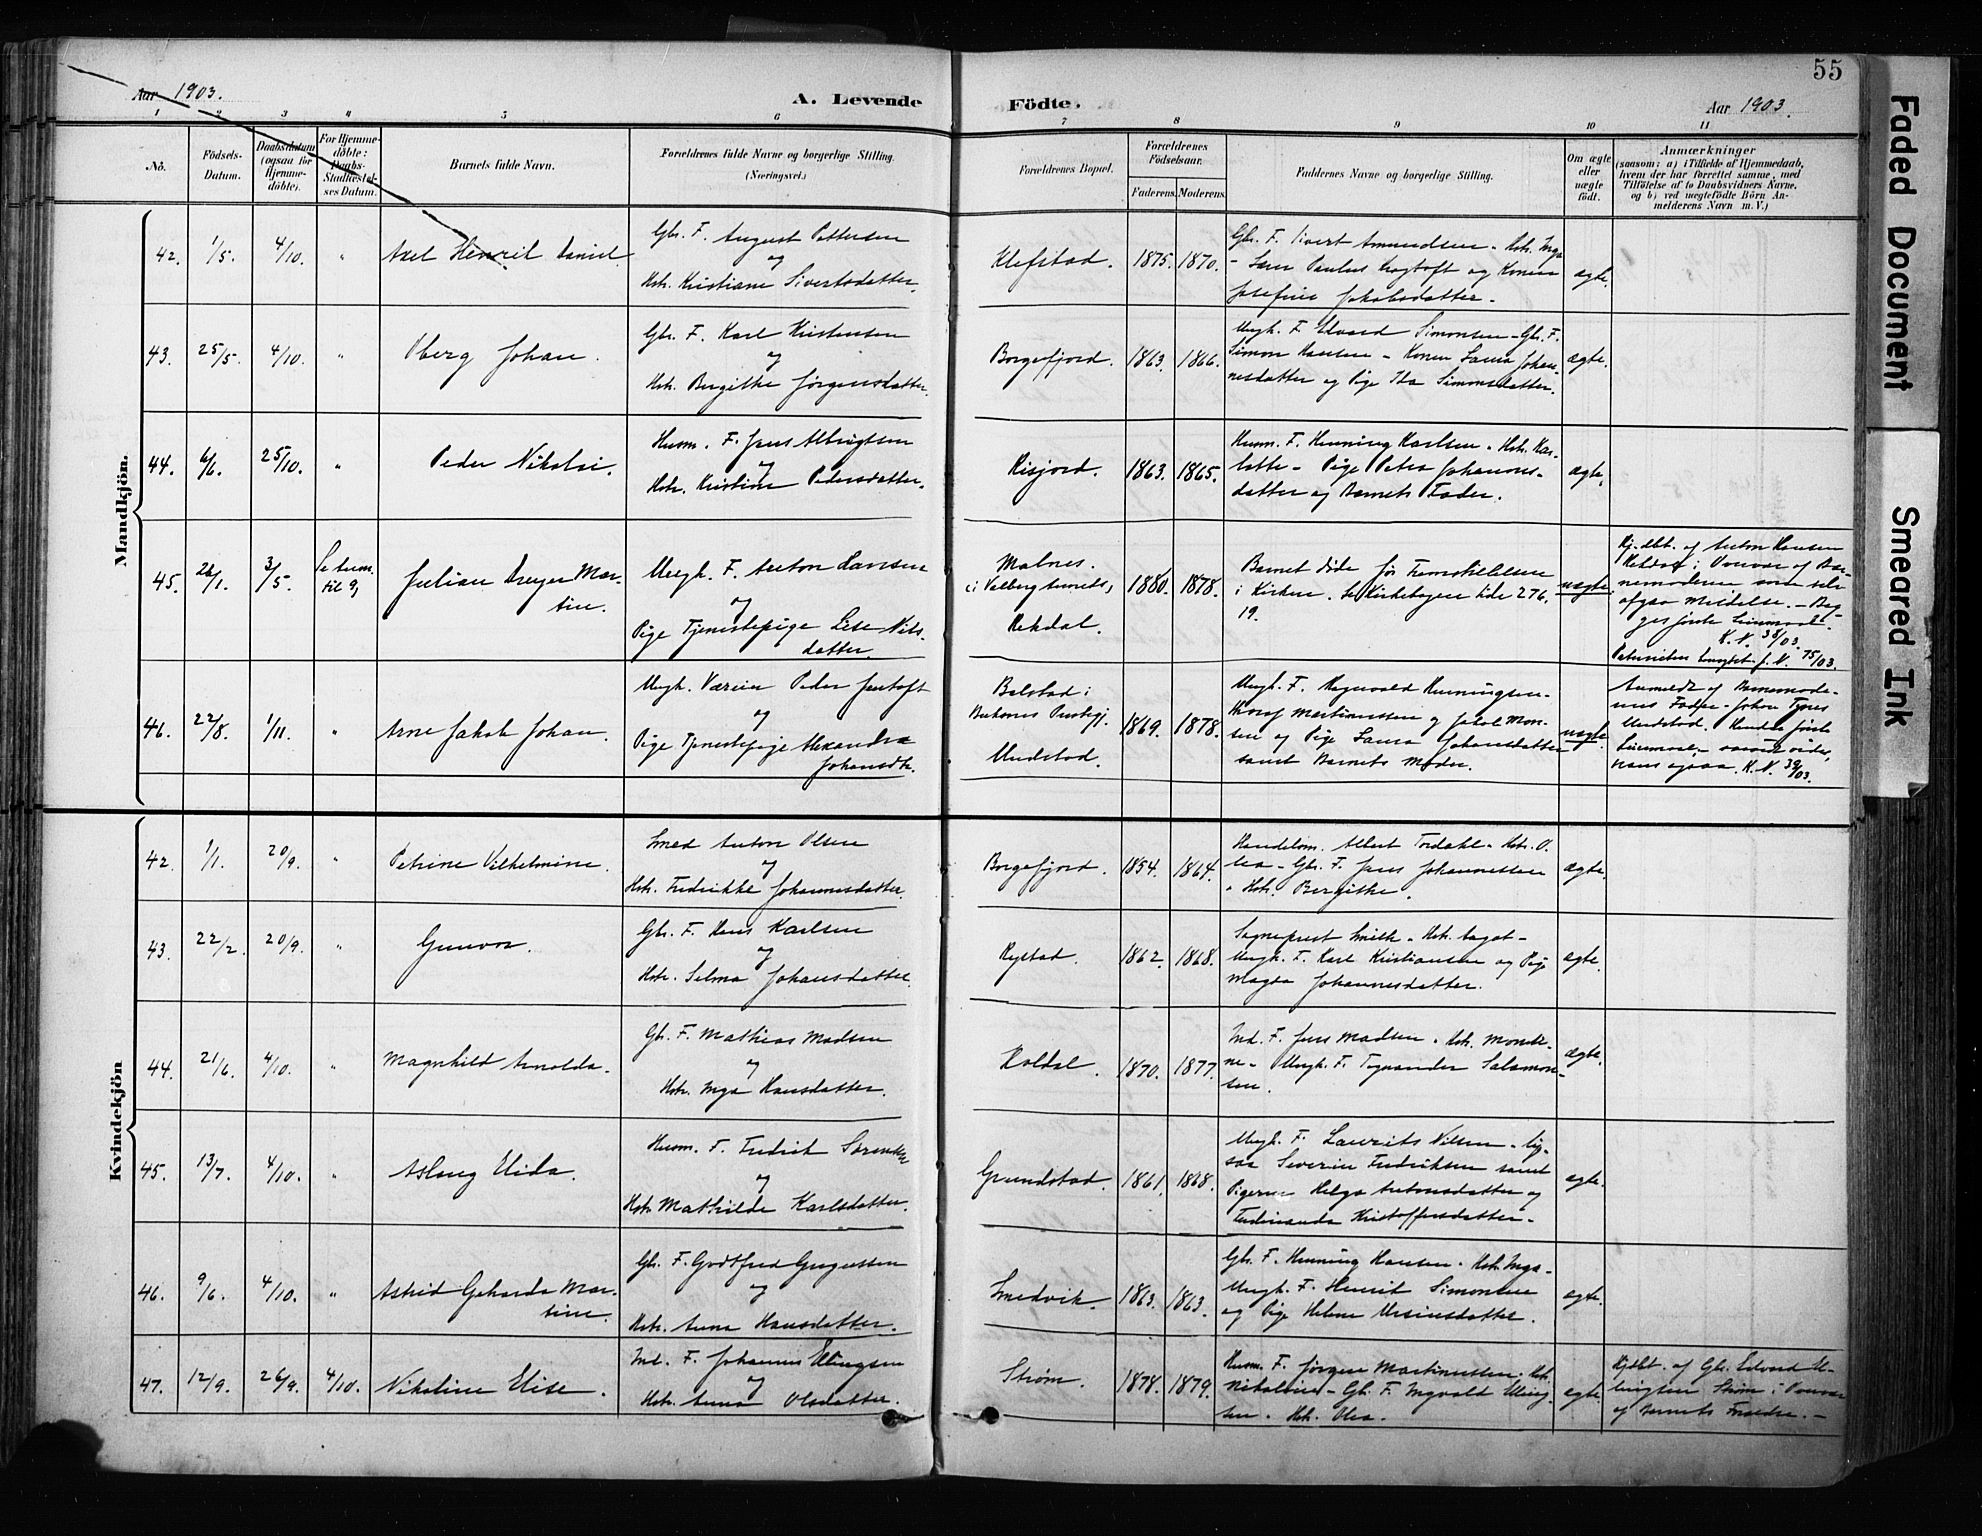 55
Aar 1903.
A. Levende
Födte.
Aar 1903.
1 2 3 4 5 6 7 8 9 10 11
No.
Födsels-
Datum.
Daabsdatum
(ogsaa for
Hjemme-
döbte).
For Hjemme-
döbte:
Daabs-
Stadfæstel-
ses Datum.
Barnets fulde Navn.
Forældrenes fulde Navne og borgerlige Stilling.
(Næringsvei.)
Forældrenes Bopæl.
Forældrenes
Födselsaar.
Faderens. Moderens.
Faddernes Navne og borgerlige Stilling.
Om ægte
eller
uægte
födt.
Anmærkninger
(saasom: a) i Tilfælde af Hjemmedaab,
hvem der har forrettet samme, med
Tilföielse af to Daabsvidners Navne,
og b) ved uægtefödte Börn An-
melderens Navn m. V.)
Mandkjön.
42. 1/5. 4/10. " Axel Henrik Daniel
Gbr. F. August Pettersen
og
Hst. Kristiane Sivertsdatter.
Klefstad. 1875. 1870.
Gbr. F. Sivert Amundsen. Hst. Inga
Josefine Jakobsdatter.
ægte.
43. 25/5. 4/10. " Oberg Johan.
Gbr. F. Karl Kristensen
og
Hst. Bergithe Jörgensdatter.
Borgefjord. 1863. 1866.
Ungk. F. Edvard Simonsen - Gbr. F.
Simon Hansen - Konen Laura Johan-
nesdatter og Pige Ida Simonsdatter.
ægte.
44. 6/6. 25/10. " Peder Nikolai.
Husm. F. Jens Albrigtsen
og
Hst. Kristine Pedersdatter.
Risjord. 1863. 1865.
Husm. F. Henning Karlsen. Hst. Kar-
lotte - Pige Petra Johannes-
datter og Barnets Fader.
ægte.
45. 26/1. 3/5. Se Anm.
til 9) Julian Dreyer Mar-
tin.
Ungk. F. Anton Hansen
og
Pige Tjenestepige Lise Nils-
datter.
Malnes.
i Valberg Anneks,
Rekdal.
1880. 1878.
Barnet döde för Fremstillelsen
i Kirken. Se Kirkebogen side 276.
19.
uægte.
Hj.dbt. af Anton Hansen
K. N. 38/03.
46. 22/8. 1/11. " Arne Jakob Johan.
Ungk. Væreier Peder Jentoft
og
Pige Tjenestepige Alexandra
Johansdtr.
Balstad i
Buksnes Prestegj.
Undstad.
1869. 1878.
Ungk. F. Ragnvald Henningsen -
Thoraf Martinussen og Jakob Mon-
sen og Pige Laura Johansdatter
samt Barnets Moder.
uægte.
Anmeldt af Barnemode-
rens Fader - Johan Tönes
Undstad. Hendes förste
Leiermaal. K. N. 39/03.
Kvindekjön
42. 1/1. 20/9. " Petrine Vilhelmine.
Smed Anton Olsen
og
Hst. Fredrikke Johannesdatter.
Borgefjord. 1854. 1864.
Handelsm. Albert Tordahl. Hst. O-
lea - Gbr. F. Jens Johannessen
. Hst. Bergithe.
ægte.
43. 22/2. 20/9. " Gunvor.
Gbr. F. Hans Karlsen
og
Hst. Selma Johansdatter.
Rystad. 1862. 1868.
Sogneprest Smith. Hst. Aagot -
Ungk. F. Karl Kristiansen og Pige
Magda Johannesdatter.
ægte.
44. 21/6. 4/10. " Magnhild Arnolda.
Gbr. F. Mathias Madsen
og
Hst. Inga Hansdatter.
Koldal. 1870. 1877.
Ind. F. Jens Madsen. Hst. Monsi-
ne - Ungk. F. Tygvander Salamon-
sen.
ægte.
45. 13/7. 4/10. " Aslaug Elida.
Husm. F. Fredrik Sörensen
og
Hst. Mathilde Karlsdatter.
Grundstad. 1861. 1868.
Ungk. F. Laurits Nilsen. Lig-
saa Severin Fredriksen samt
Pigerne Helga Antonsdatter og
Ferdinanda Kristoffersdatter.
ægte.
46. 9/6. 4/10. " Astrid Geharda Mar-
tine.
Gbr. F. Godtfred Gregussen
og
Hst. Anna Hansdatter.
Smedvik. 1863. 1863.
Gbr. F. Henning Hansen. Hst. Inga -
Ungk. F. Henrik Simonsen
og Pige Helene Ursinsdatter.
ægte.
47. 12/9. 26/9. 4/10. Nikoline Elise.
Ind. F. Johannes Ellingsen
og
Hst. Anna Olsdatter.
Ström. 1878. 1879.
Husm. F. Jörgen Martinussen. Hst.
Nikoline - Gbr. F. Ingvald Elling-
sen. Hst. Olea.
ægte.
Hjdbt. af Gbr. Edvard El-
lingsen Ström i Nærvær
af Barnets Forældre. -
Faded Document
Smeared Ink